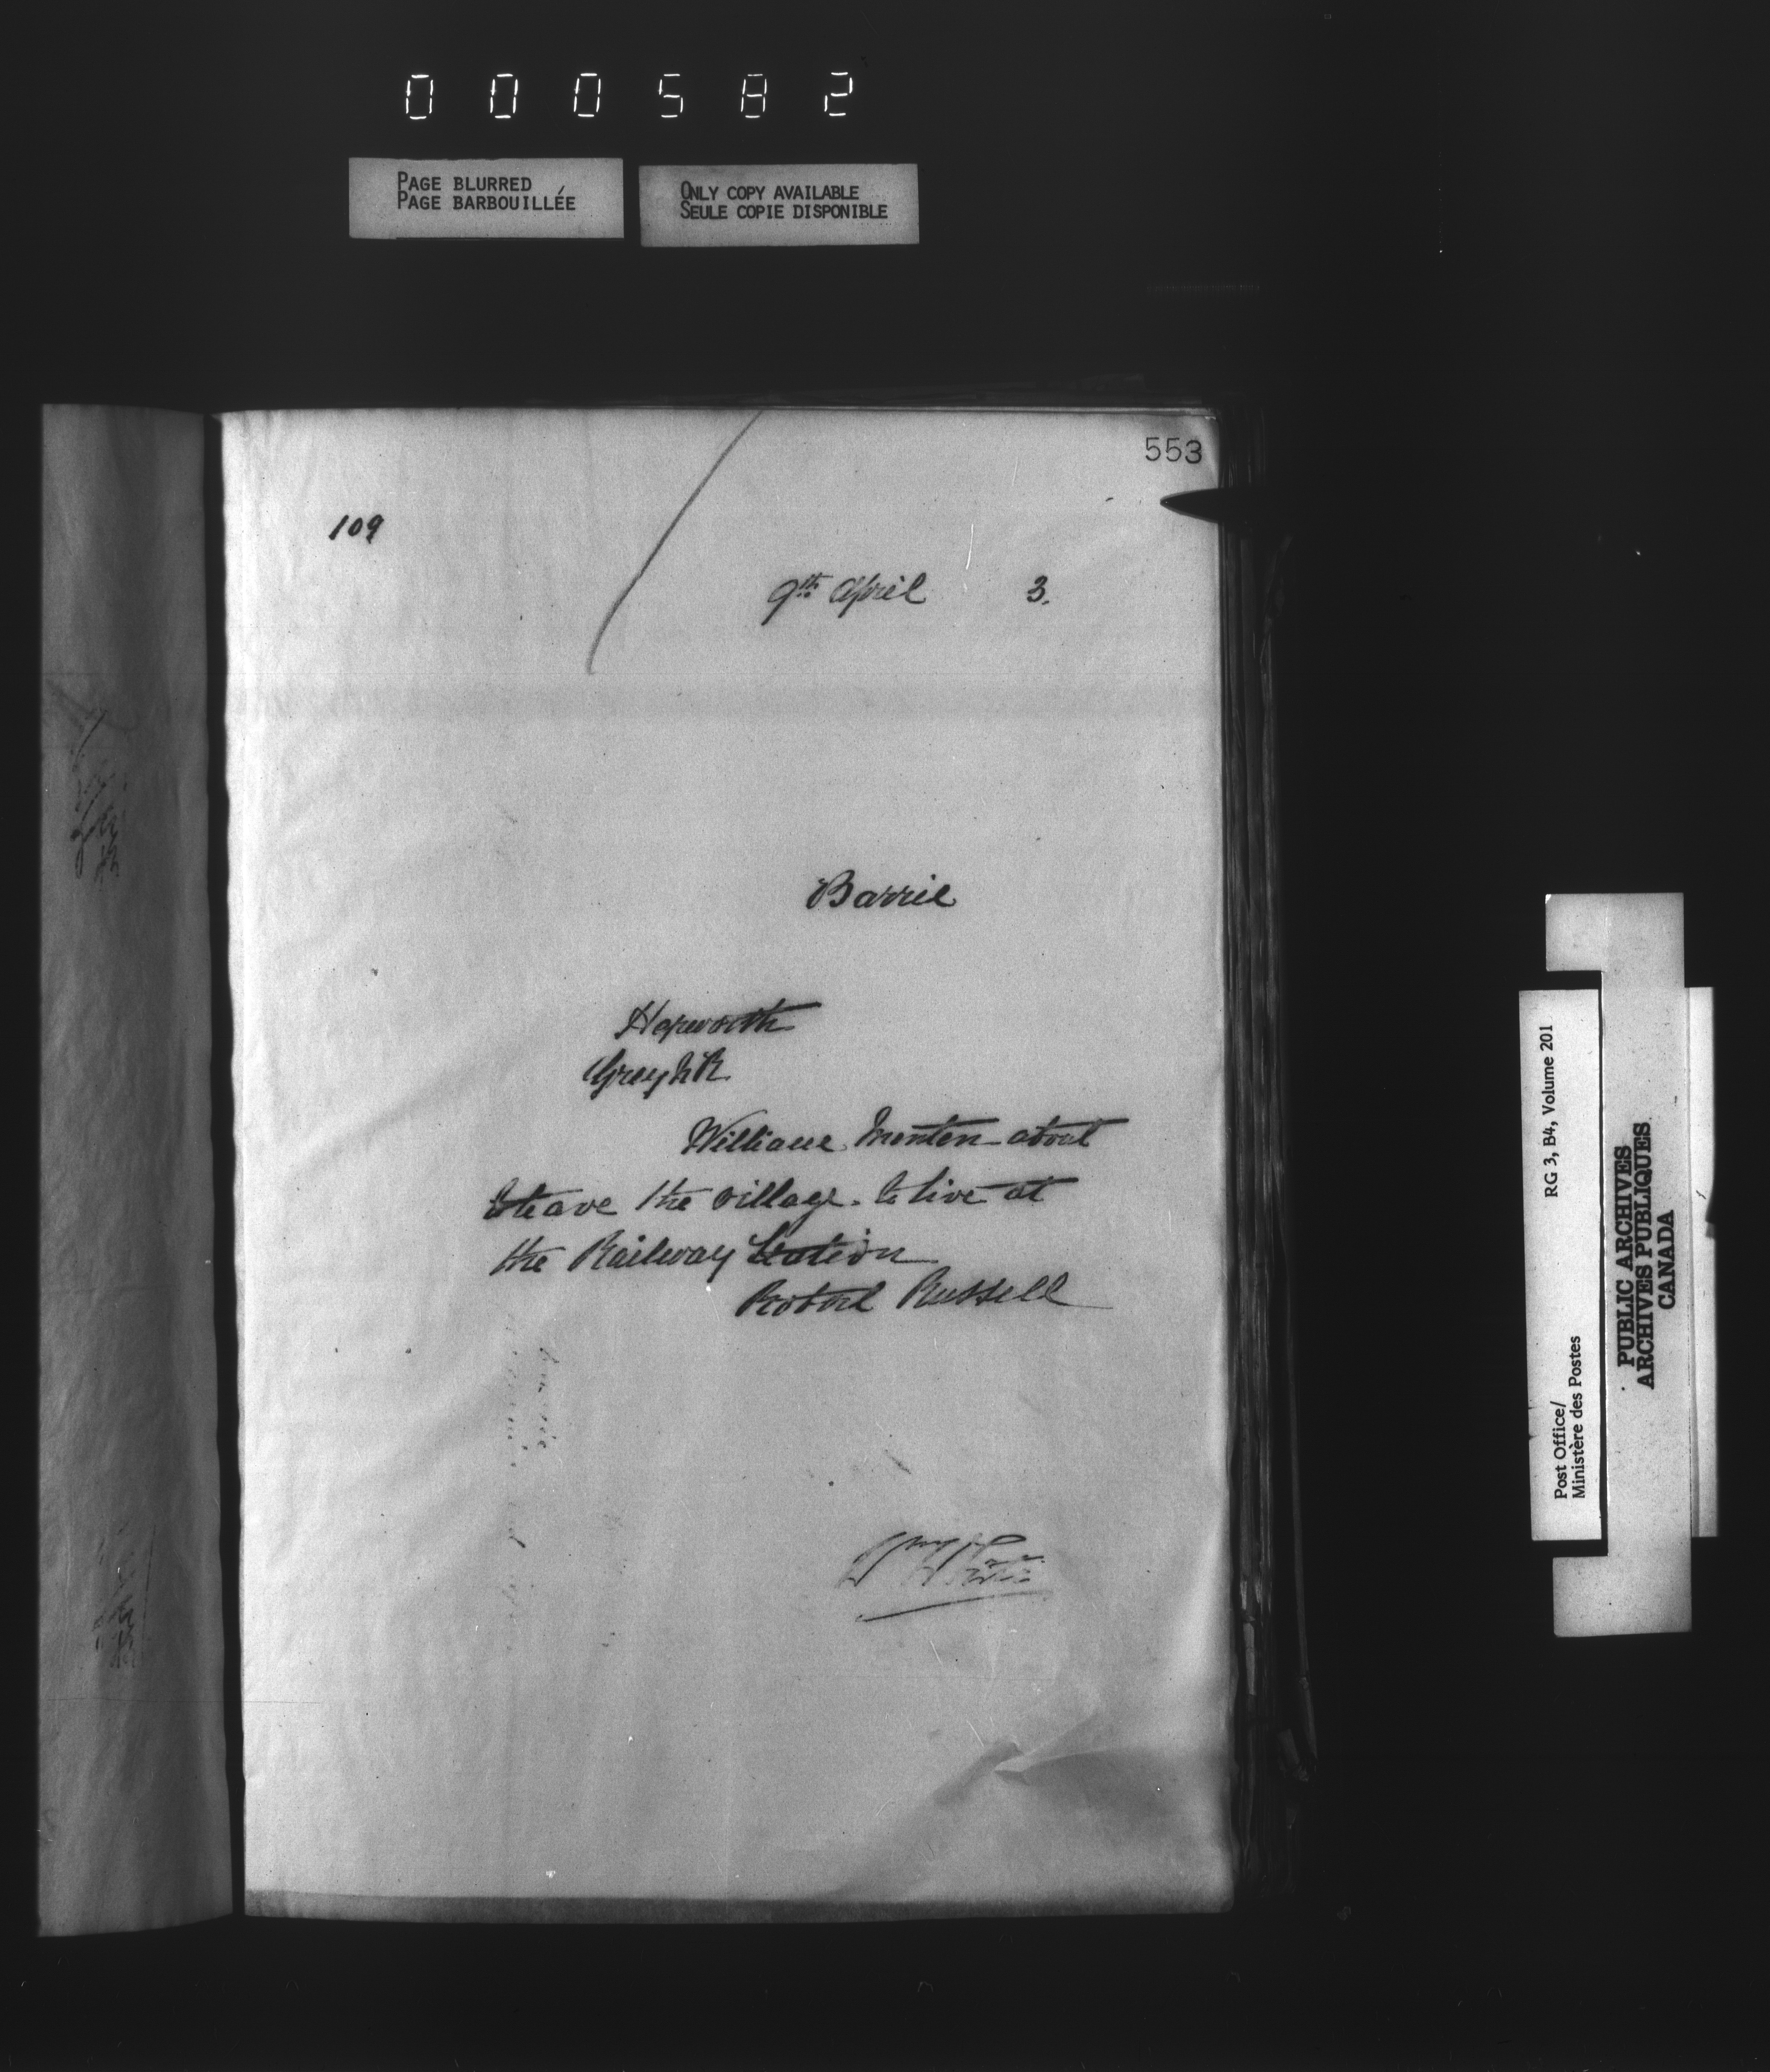 000582
PAGE BLURRED
PAGE BARBOUILLÉE
ONLY COPY AVAILABLE
SEULE COPIE DISPONIBLE
553
109
9th April 3.
Barrie
Hepworth
Grey N R
William about
to leave the village. to live at
the Railway Station
Robert Russell
RG 3, B4, Volume 201
Post Office/
Ministère des Postes
PUBLIC ARCHIVES
ARCHIVES PUBLIQUES
CANADA